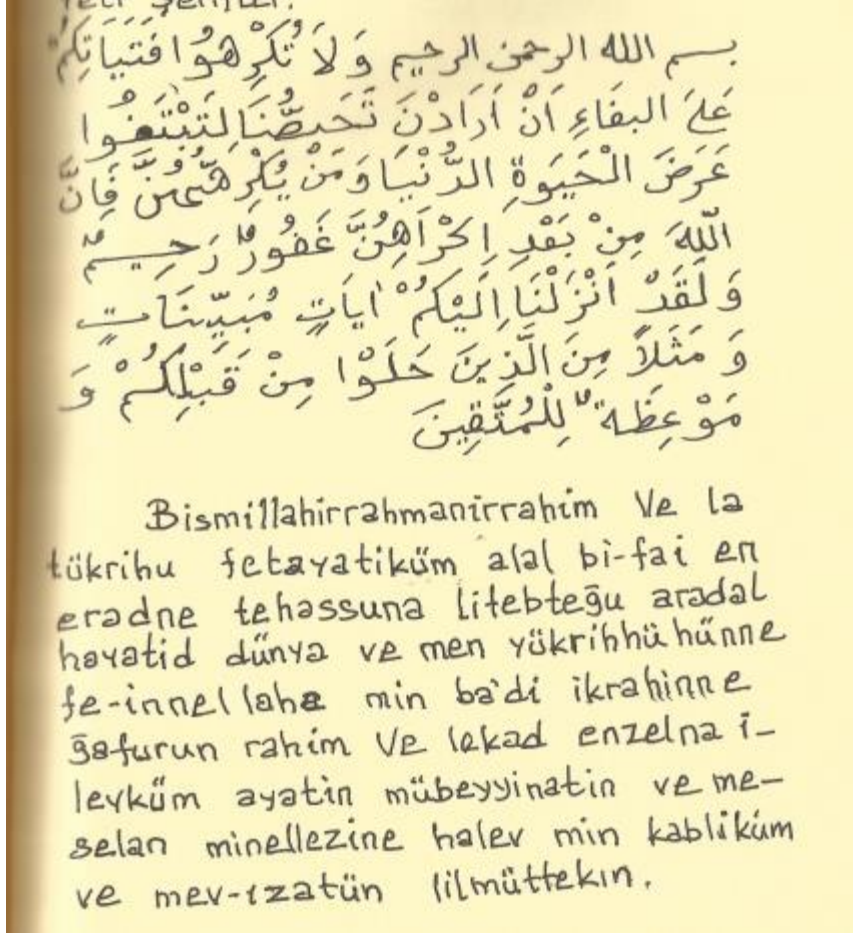 بسم الله الرحمن الرحيم وَلَا تُكْرِهُوا فَتَيَاتِكُمْ
عَلَى البِفَاءِ اَنْ اَرَادْنَ تَحَصُّنَا لِتَبْتَغُوا
عَرَضَ الْحَيَوةِ الدُّنْيَا وَمَنْ يُكْرِهْهُنَّ فَاِنَّ
اللّٰهَ مِنْ بَعْدِ اِكْرَاهِهِنَّ غَفُورٌ رَحِيمٌ
وَلَقَدْ اَنْزَلْنَا اِلَيْكُمْ اٰيَاتٍ مُبَيِّنَاتٍ
وَ مَثَلاً مِنَ الَّذِينَ خَلَوْا مِنْ قَبْلِكُمْ وَ
مَوْعِظَةً لِلْمُتَّقِينَ
Bismillahirrahmanirrahim Ve la
tükrihu fetayatiküm alal bi-fai en
eradne tehassuna litebteğu aradal
hayatid dünya ve men yükrihhü hünne
fe-innellaha min ba'di ikrahinne
ğafurun rahim Ve lekad enzelna i-
leyküm ayatin mübeyyinatin ve me-
selan minellezine halev min kabliküm
ve mev-ızatün lilmüttekın.